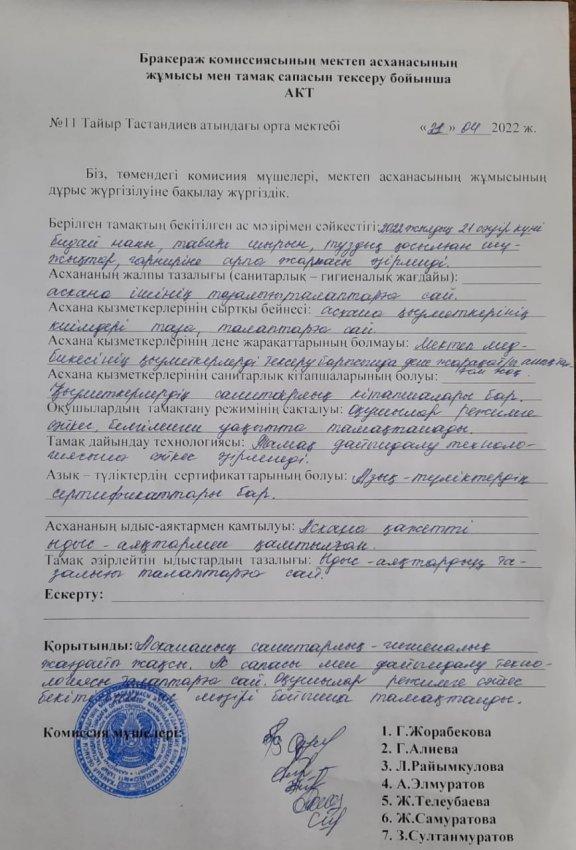 Бракераж комиссиясының мектеп асханасының
жұмысы мен тамақ сапасын тексеру бойынша
АКТ
№11 Тайыр Тастандиев атындағы орта мектебі «21» 04 2022 ж.
Біз, төмендегі комисиия мүшелері, мектеп асханасының жұмысының
дұрыс жүргізілуіне бақылау жүргіздік.
Берілген тамақтың бекітілген ас мәзірімен сәйкестігі: 2022 жылдың 21 сәуір күні
бидай наны, табиғи шырын, тұздық қосылған шұ-
жықтар, гарниріне арпа жармасы әзірленді.
Асхананың жалпы тазалығы (санитарлық – гигиеналық жағдайы):
асхана ішінің тазалығы талаптарға сай.
Асхана қызметкерлерінің сыртқы бейнесі: асхана қызметкерінің
киімдері таза, талаптарға сай.
Асхана қызметкерлерінің дене жарақаттарының болмауы: Мектеп мед-
бикесінің қызметкерлерді тексеру барысында дене жарақаты
Асхана қызметкерлерінің санитарлық кітапшаларының болуы:
Қызметкерлердің санитарлық кітапшалары бар.
Оқушылардың тамақтану режимінің сақталуы: Оқушылар режимге
сәйкес, белгіленген уақытта тамақтанады.
Тамақ дайындау технологиясы: Тамақ дайындалу техноло-
гиясына сәйкес әзірленеді.
Азық – түліктердің сертификаттарының болуы: Азық-түліктердің
сертификаттары бар.
Асхананың ыдыс-аяқтармен қамтылуы: Асхана қажетті
ыдыс-аяқтармен қамтылған.
Тамақ әзірлейтін ыдыстардың тазалығы: Ыдыс-аяқтардың та-
залығы талаптарға сай.
Ескерту:
Қорытынды: Асхананың санитарлық-гигиеналық
жағдайы жақсы. Ас сапасы мен дайындалу техно-
логиясы талаптарға сай. Оқушылар режимге сәйес
ас мәзірі бойынша тамақтанды.
Комиссия мүшелері:
1. Г.Жорабекова
2. Г.Алиева
3. Л.Райымкулова
4. А.Элмуратов
5. Ж.Телеубаева
6. Ж.Самуратова
7. З.Султанмуратов